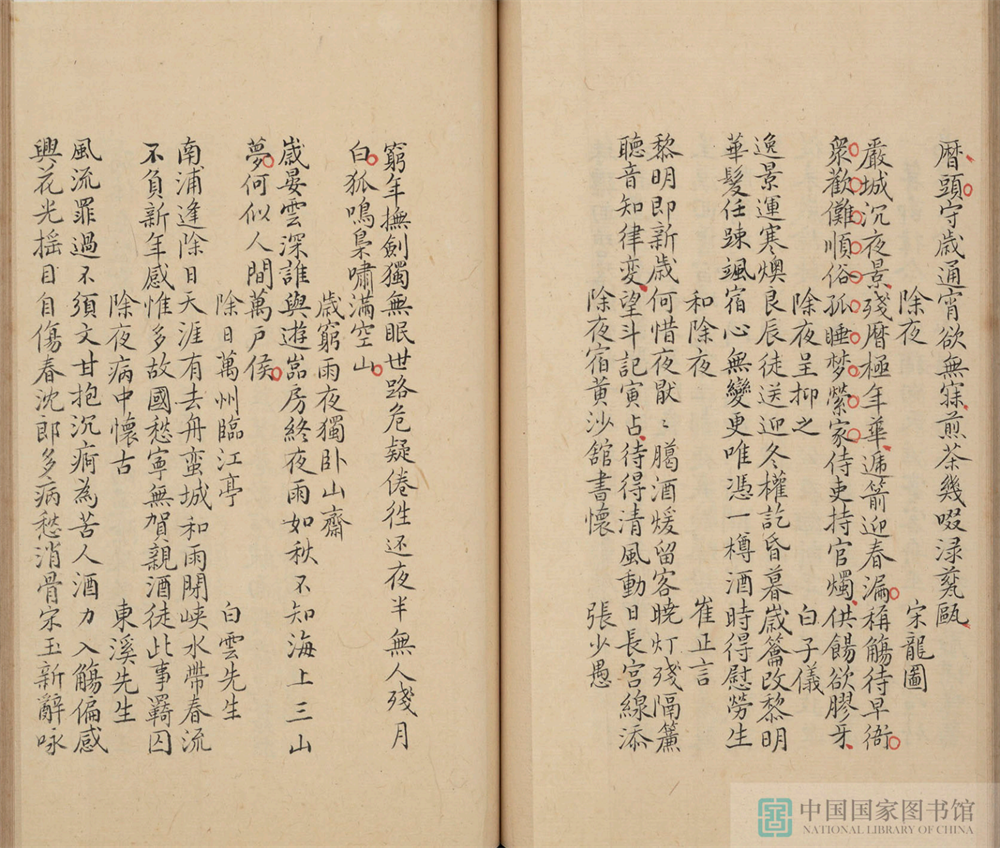 暦頭守歳通宵欲無寐煎茶幾啜渌甆甌
除夜 宋龍圖
嚴城沉夜景殘暦極年華逓箭迎春漏稱觴待早衙
衆歡儺順俗孤睡梦縈家侍吏持官燭供餳欲膠牙
除夜呈抑之 白子儀
逸景運寒燠良辰徒送迎冬權訖昏暮歳籥改黎明
華髮任踈颯宿心無變更唯憑一樽酒時得慰勞生
和除夜 崔正言
黎明即新歳何惜夜厭〻臈酒煖留客曉灯殘隔簾
聽音知律变望斗記寅占待得清風動日長宫線添
除夜宿黄沙舘書懷 張少愚
窮年撫劍獨無眠世路危疑倦徃还夜半無人殘月
白狐鳴梟嘯滿空山
歳窮雨夜獨卧山齋
歳晏雲深誰與遊嵓房終夜雨如秋不知海上三山
夢何似人間萬户侯
除日萬州臨江亭 白雲先生
南浦逢除日天涯有去舟蛮城和雨閉峡水帶春流
不負新年感惟多故國愁寧無賀親酒徒此事羇囚
除夜病中懷古 東溪先生
風流罪過不須文甘抱沉痾為苦人酒力入觴偏感
興花光揺目自傷春沈郎多病愁消骨宋玉新辭咏
中国国家图书馆
NATIONAL LIBRARY OF CHINA